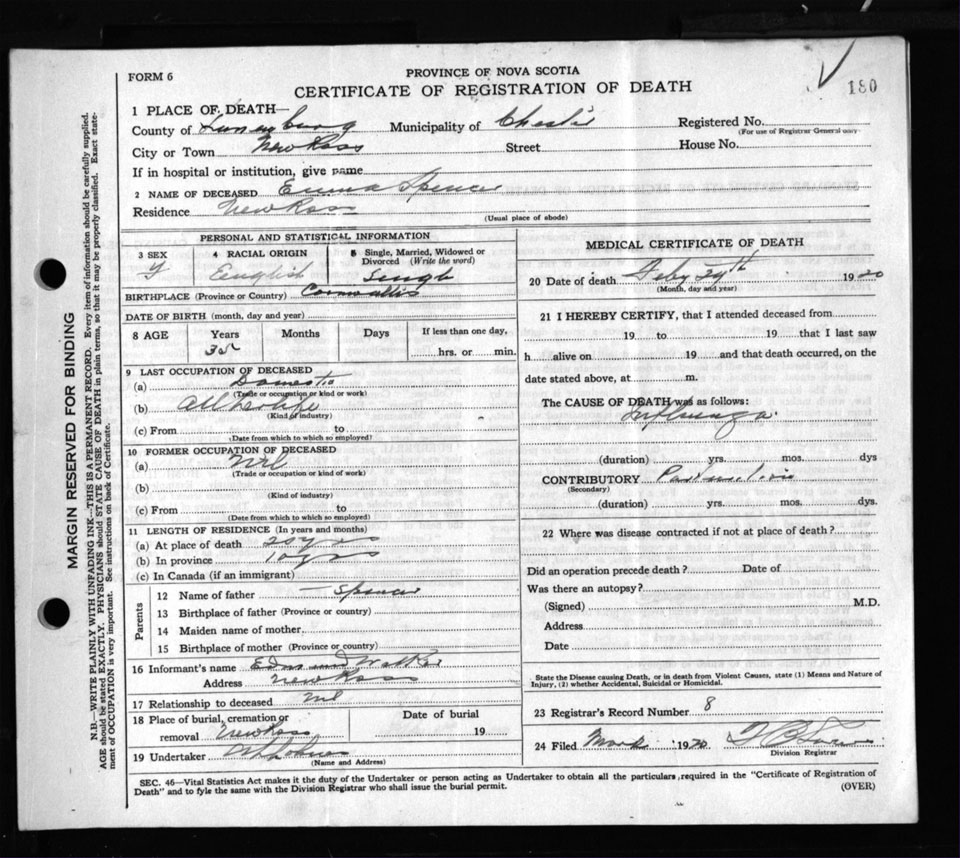 FORM 6
PROVINCE OF NOVA SCOTIA
CERTIFICATE OF REGISTRATION OF DEATH
180
1 PLACE OF DEATH—
County of Lunenburg Municipality of Chester Registered No.
(For use of Registrar General only
City or Town New Ross Street House No.
If in hospital or institution, give name
2 NAME OF DECEASED Emma Spencer
Residence New Ross
(Usual place of abode)
PERSONAL AND STATISTICAL INFORMATION
3 SEX
4 RACIAL ORIGIN English
5 Single, Married, Widowed or Divorced (Write the word) Single
BIRTHPLACE (Province or Country) Cornwallis
DATE OF BIRTH (month, day and year)
8 AGE Years Months Days If less than one day,
35 hrs. or min.
9 LAST OCCUPATION OF DECEASED
(a) Domestic
(Trade or occupation or kind or work)
(b) All her life
(Kind of industry)
(c) From to
(Date from which to which so employed)
10 FORMER OCCUPATION OF DECEASED
(a) Nil
(Trade or occupation or kind of work)
(b)
(Kind of industry)
(c) From to
(Date from which to which so employed)
11 LENGTH OF RESIDENCE (In years and months)
(a) At place of death yrs
(b) In province 10 yrs
(c) In Canada (if an immigrant)
Parents
12 Name of father — Spencer
13 Birthplace of father (Province or country)
14 Maiden name of mother
15 Birthplace of mother (Province or country)
16 Informant's name Edmund Walker
Address New Ross
17 Relationship to deceased Nil
18 Place of burial, cremation or removal New Ross
Date of burial
19
19 Undertaker
(Name and Address)
MEDICAL CERTIFICATE OF DEATH
20 Date of death Feby 29th 1920
(Month, day and year)
21 I HEREBY CERTIFY, that I attended deceased from
19 to 19 that I last saw
h alive on 19 and that death occurred, on the
date stated above, at m.
The CAUSE OF DEATH was as follows:
Influenza
(duration) yrs. mos. dys
CONTRIBUTORY
(Secondary)
(duration) yrs. mos. dys.
22 Where was disease contracted if not at place of death?
Did an operation precede death? Date of
Was there an autopsy?
(Signed) M.D.
Address
Date
State the Disease causing Death, or in death from Violent Causes, state (1) Means and Nature of
Injury, (2) whether Accidental, Suicidal or Homicidal.
23 Registrar's Record Number 8
24 Filed 1920
Division Registrar
SEC. 46—Vital Statistics Act makes it the duty of the Undertaker or person acting as Undertaker to obtain all the particulars required in the "Certificate of Registration of
Death" and to fyle the same with the Division Registrar who shall issue the burial permit.
(OVER)
MARGIN RESERVED FOR BINDING
N.B.—WRITE PLAINLY WITH UNFADING INK—THIS IS A PERMANENT RECORD. Every item of information should be carefully supplied.
AGE should be stated EXACTLY. PHYSICIANS should STATE CAUSE OF DEATH in plain terms, so that it may be properly classified. Exact state-
ment of OCCUPATION is very important. See instructions on back of Certificate.